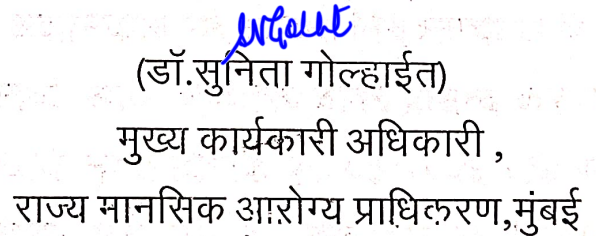 (डॉ.सुनिता गोल्हाईत)
मुख्य कार्यकारी अधिकारी ,
राज्य मानसिक आरोग्य प्राधिकरण,मुंबई